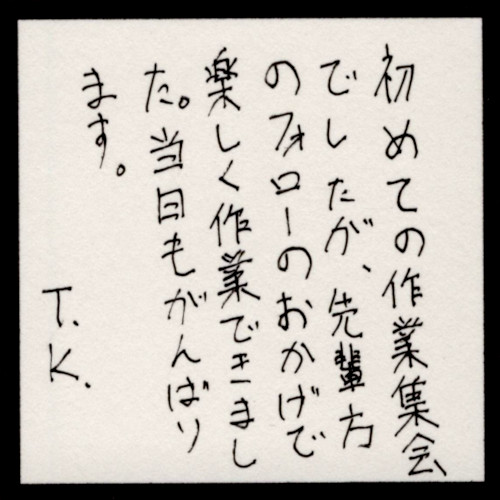 初めての作業集会
でしたが、先輩方
のフォローのおかげで
楽しく作業できまし
た。当日もがんばり
ます。
T.K.